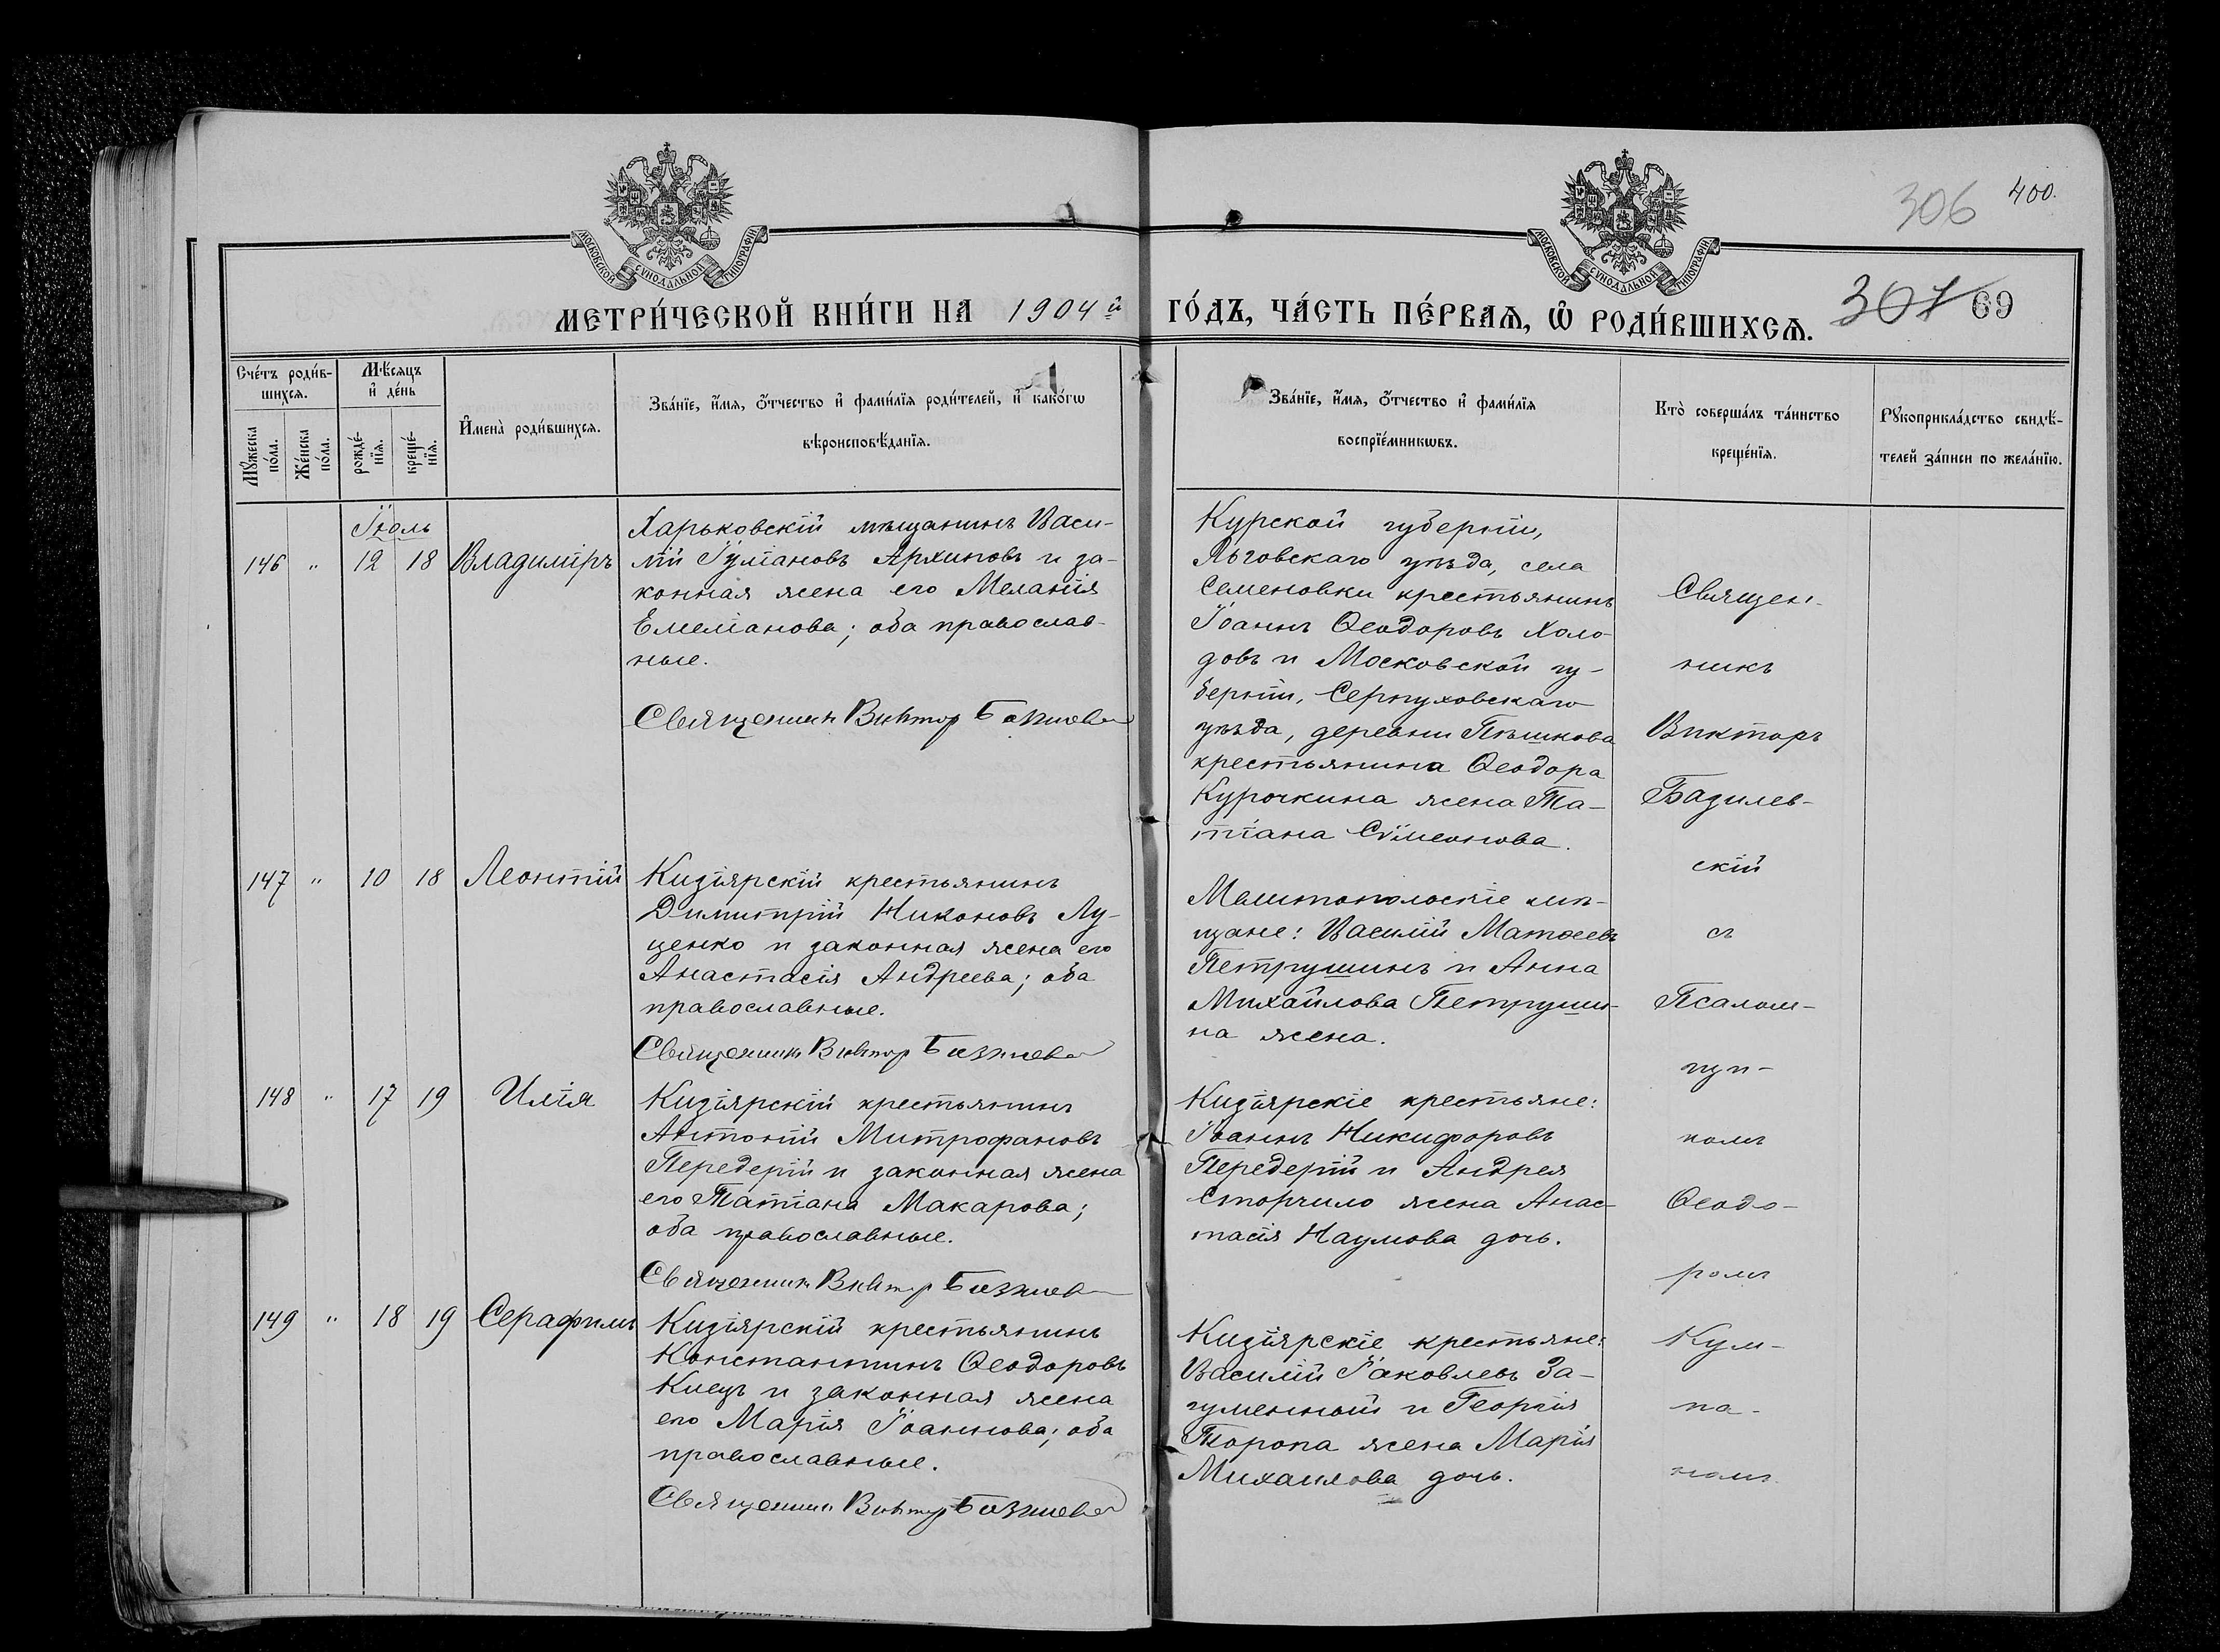 МОСКОВСКОЙ СѴНОДАЛЬНОЙ ТИПОГРАФІИ
МОСКОВСКОЙ СѴНОДАЛЬНОЙ ТИПОГРАФІИ
306 400.
МЕТРИ́ЧЕСКОЙ КНИ́ГИ НА 1904й
ГО́ДЪ, ЧА́СТЬ ПЕ́РВАѦ, Ѡ РОДИ́ВШИХСѦ.
307 69
Сче́тъ роди́в-
шихсѧ.
Мꙋ́жеска
по́ла.
Же́нска
по́ла.
Мѣ́сѧцъ
и҆ де́нь
рожде́-
нїѧ.
креще́-
нїѧ.
И҆мена̀ роди́вшихсѧ.
Зва́нїе, и҆́мѧ, ѻ҆́тчество и҆ фами́лїѧ роди́телей, и҆ како́гѡ
вѣроисповѣ́данїѧ.
Зва́нїе, и҆́мѧ, ѻ҆́тчество и҆ фами́лїѧ
воспрїе́мникѡвъ.
Кто̀ соверша́лъ та́инство
креще́нїѧ.
Рꙋкоприкла́дство свидѣ́-
телей за́писи по жела́нїю.
Іюль
146 " 12 18 Владиміръ
Харьковскій мѣщанинъ Васи-
лій Іуліановъ Архиповъ и за-
конная жена его Меланія
Емеліанова; оба православ-
ные.
Священникъ Викторъ Базилев
Курской губерніи,
Льговскаго уѣзда, села
Семеновки крестьянинъ
Іоаннъ Ѳеодоровъ Холо-
довъ и Московской гу-
берніи, Серпуховскаго
уѣзда, деревни Пѣшкова
крестьянина Ѳеодора
Курочкина жена Та-
тіана Сѵмеонова.
147 " 10 18 Леонтій
Кизіярскій крестьянинъ
Димитрій Никоновъ Лу-
ценко и законная жена его
Анастасія Андреева; оба
православные.
Священникъ Викторъ Базилев
Мелитопольскіе мѣ-
щане: Василій Матѳеевъ
Петрушинъ и Анна
Михайлова Петруши-
на жена.
148 " 17 19 Илія
Кизіярскій крестьянинъ
Антоній Митрофановъ
Передерій и законная жена
его Татіана Макарова;
оба православные.
Священникъ Викторъ Базилев
Кизіярскіе крестьяне:
Іоаннъ Никифоровъ
Передерій и Андрея
Сторчило жена Анас-
тасія Наумова дочь.
149 " 18 19 Серафимъ
Кизіярскій крестьянинъ
Константинъ Ѳеодоровъ
Киецъ и законная жена
его Марія Іоаннова; оба
православные.
Священникъ Викторъ Базилев
Кизіярскіе крестьяне:
Василій Іаковлевъ За-
гуменный и Георгія
Торопа жена Марія
Михаилова дочь.
Священ-
никъ
Викторъ
Базилев-
скій
съ
Псалом-
щи-
комъ
Ѳеодо-
ромъ
Кум-
па-
номъ.